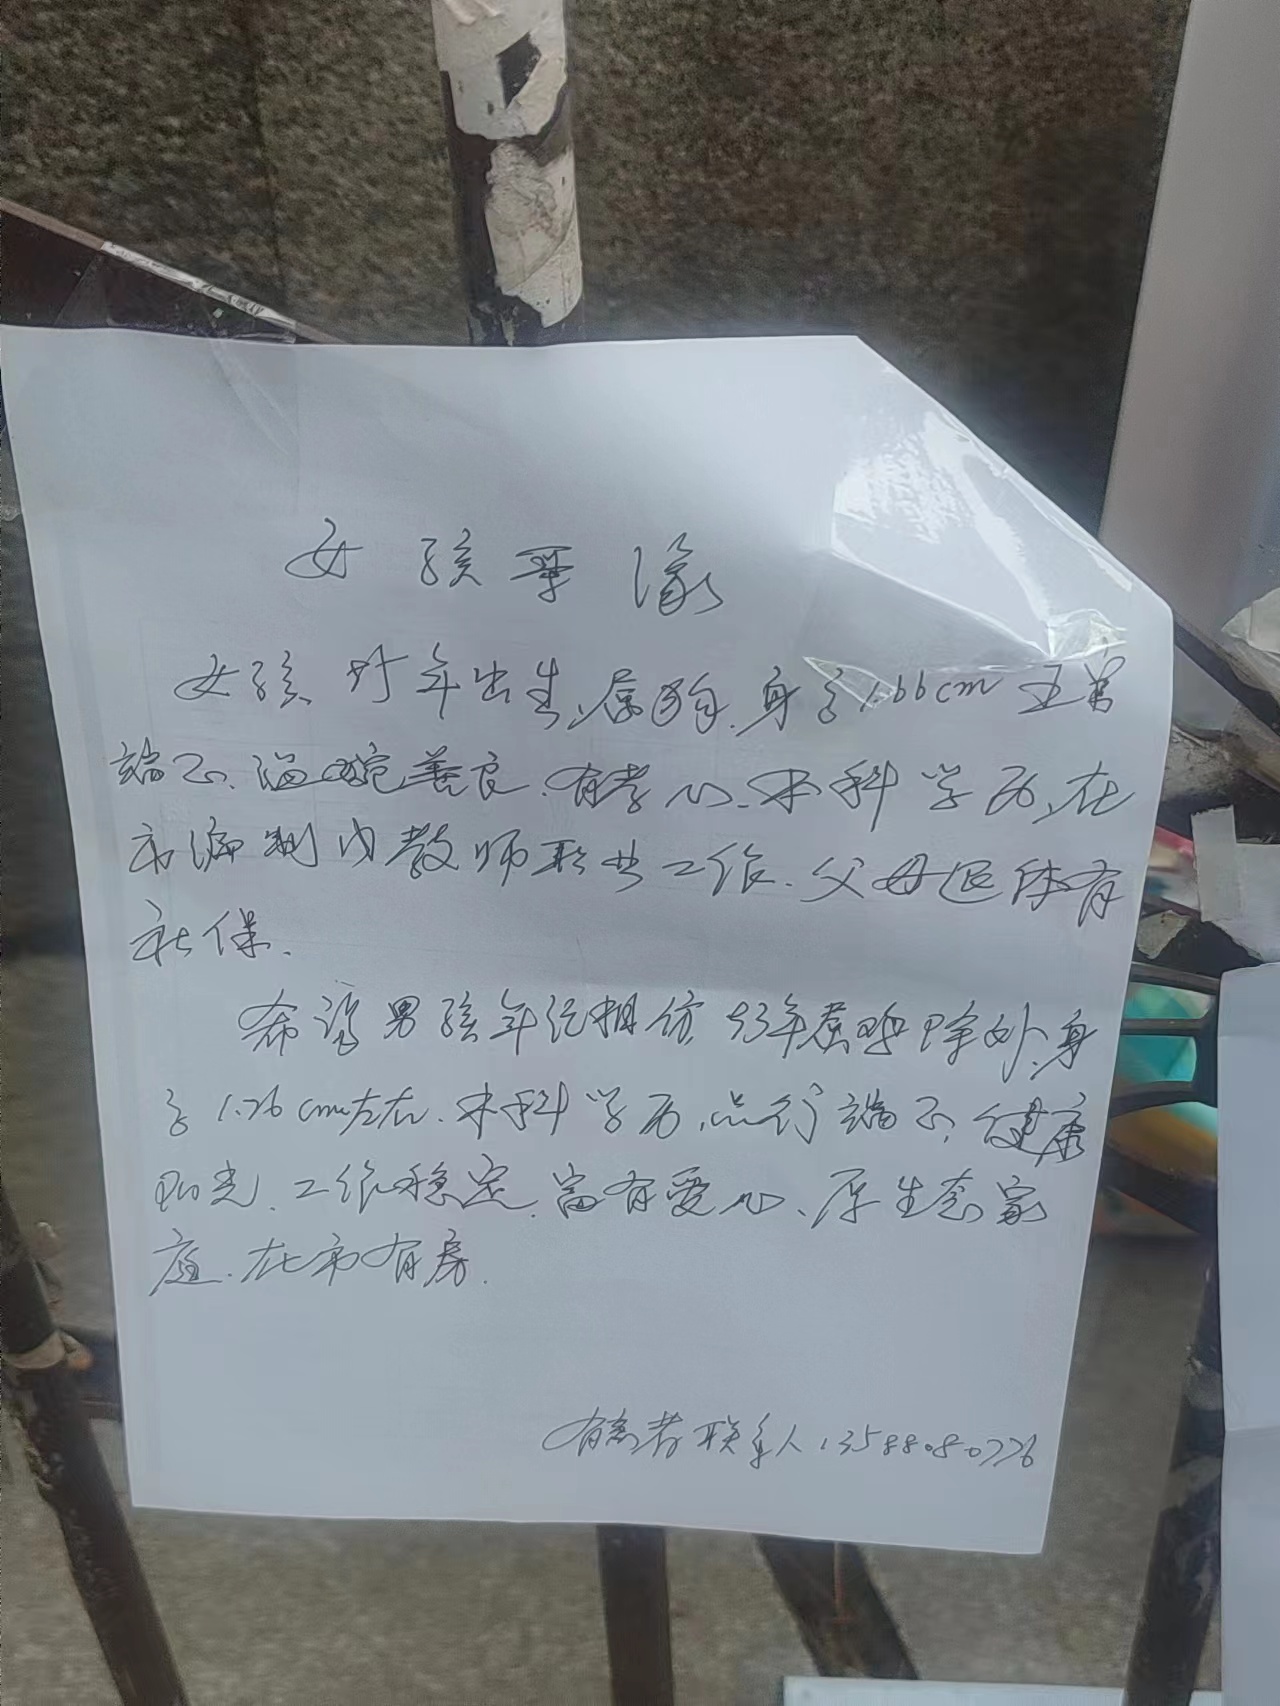 女孩觅缘
女孩94年出生、属狗、身高1.66cm 五官
端正、温婉善良、有孝心、本科学历、在
市编制内教师职业工作、父母退休有
社保、
希望男孩年纪相仿 93年属鸡除外、身
高1.76cm左右、本科学历、品行端正、健康
阳光、工作稳定、富有爱心、原生态家
庭、在市有房、
有意者联系人13588080776